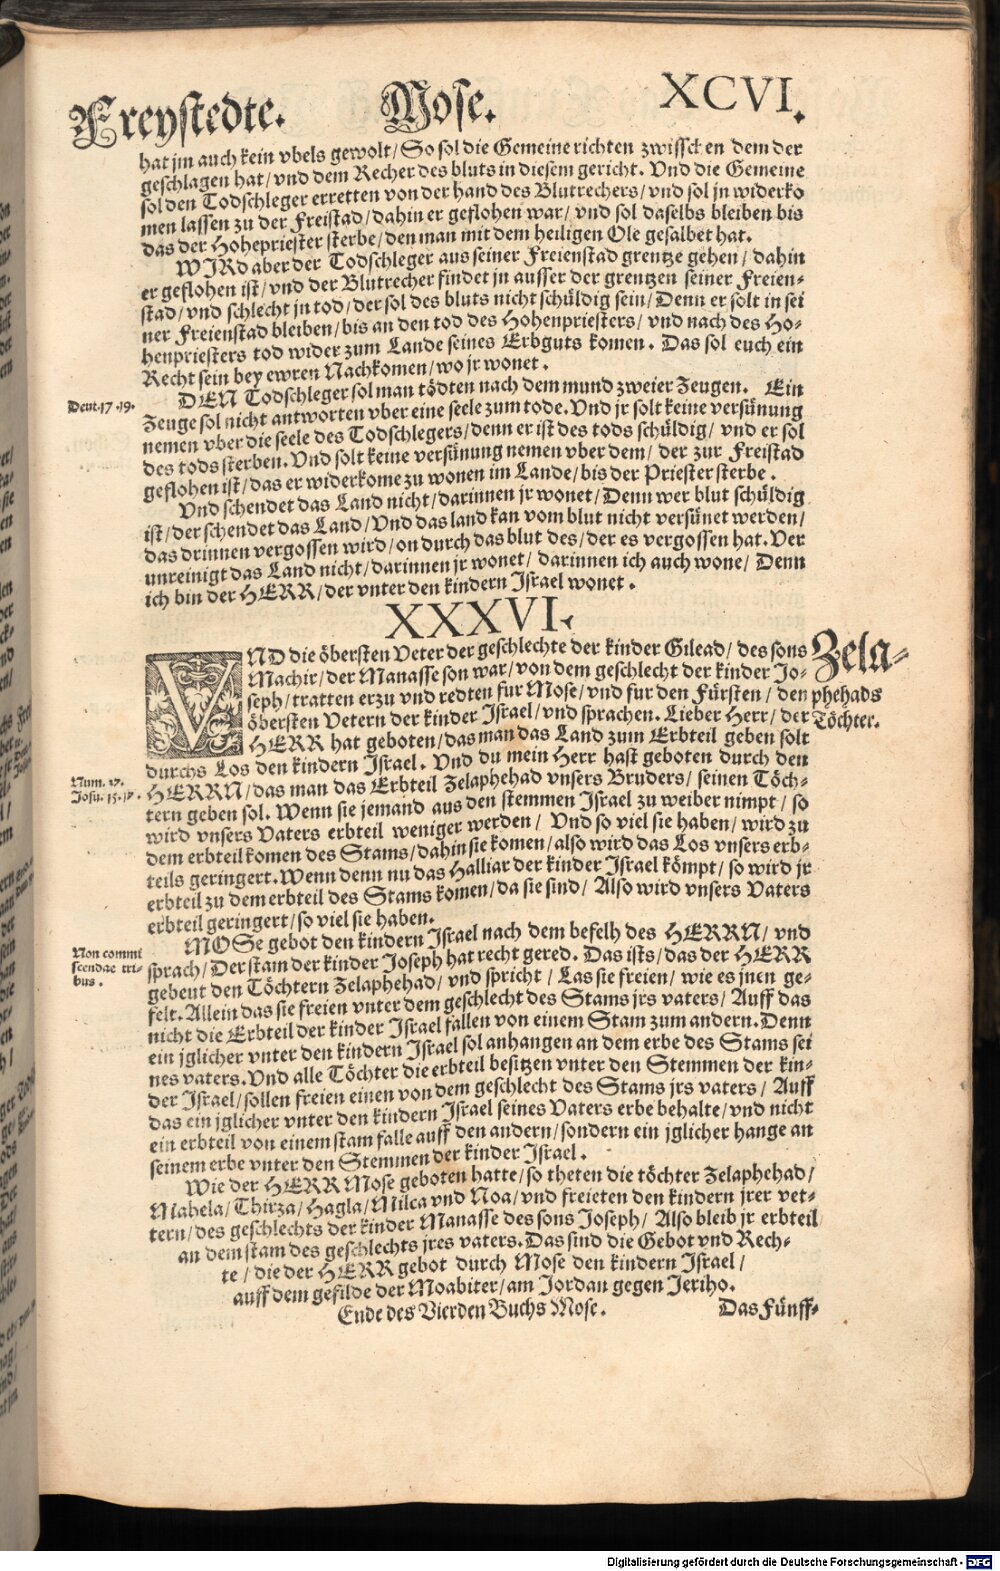 Freystedte. Mose. XCVI.
hat jm auch kein vbels gewolt/ So sol die Gemeine richten zwisschen dem der
geschlagen hat/ vnd dem Recher des bluts in diesem gericht. Vnd die Gemeine
sol den Todschleger erretten von der hand des Blutrechers/ vnd sol jn widerko
men lassen zu der Freistad/ dahin er geflohen war/ vnd sol daselbs bleiben bis
das der Hohepriester sterbe/ den man mit dem heiligen Ole gesalbet hat.
WIRd aber der Todschleger aus seiner Freienstad grentze gehen/ dahin
er geflohen ist/ vnd der Blutrecher findet jn ausser der grentzen seiner Freien-
stad/ vnd schlecht jn tod/ der sol des bluts nicht schüldig sein/ Denn er solt in sei
ner Freienstad bleiben/ bis an den tod des Hohenpriesters/ vnd nach des Ho-
henpriesters tod wider zum Lande seines Erbguts komen. Das sol euch ein
Recht sein bey ewren Nachkomen/ wo jr wonet.
Deut. 17. 19.
DEN Todschleger sol man tödten nach dem mund zweier Zeugen. Ein
Zeuge sol nicht antworten vber eine seele zum tode. Vnd jr solt keine versünung
nemen vber die seele des Todschlegers/ denn er ist des tods schüldig/ vnd er sol
des tods sterben. Vnd solt keine versünung nemen vber dem/ der zur Freistad
geflohen ist/ das er widerkome zu wonen im Lande/ bis der Priester sterbe.
Vnd schendet das Land nicht/ darinnen jr wonet/ Denn wer blut schüldig
ist/ der schendet das Land/ Vnd das land kan vom blut nicht versünet werden/
das drinnen vergossen wird/ on durch das blut des/ der es vergossen hat. Ver
unreinigt das Land nicht/ darinnen jr wonet/ darinnen ich auch wone/ Denn
ich bin der HERR/ der vnter den kindern Israel wonet.
XXXVI.
Zela-
phehads
Töchter.
VND die öbersten Veter der geschlechte der kinder Gilead/ des sons
Machir/ der Manasse son war/ von dem geschlecht der kinder Jo-
seph/ tratten erzu vnd redten fur Mose/ vnd fur den Fürsten/ den
öbersten Vetern der kinder Israel/ vnd sprachen. Lieber Herr/ der
HERR hat geboten/ das man das Land zum Erbteil geben solt
durchs Los den kindern Israel. Vnd du mein Herr hast geboten durch den
Num. 27.
Josu. 15. 17.
HERRN/ das man das Erbteil Zelaphehad vnsers Bruders/ seinen Töch-
tern geben sol. Wenn sie jemand aus den stemmen Israel zu weiber nimpt/ so
wird vnsers Vaters erbteil weniger werden/ Vnd so viel sie haben/ wird zu
dem erbteil komen des Stams/ dahin sie komen/ also wird das Los vnsers erb-
teils geringert. Wenn denn nu das Halliar der kinder Israel kömpt/ so wird jr
erbteil zu dem erbteil des Stams komen/ da sie sind/ Also wird vnsers Vaters
erbteil geringert/ so viel sie haben.
Non commi
scendae tri-
bus.
MOSe gebot den kindern Israel nach dem befelh des HERRN/ vnd
sprach/ Der stam der kinder Joseph hat recht gered. Das ists/ das der HERR
gebeut den Töchtern Zelaphehad/ vnd spricht/ Las sie freien/ wie es jnen ge-
felt. Allein das sie freien vnter dem geschlecht des Stams jrs vaters/ Auff das
nicht die Erbteil der kinder Israel fallen von einem Stam zum andern. Denn
ein jglicher vnter den kindern Israel sol anhangen an dem erbe des Stams sei
nes vaters. Vnd alle Töchter die erbteil besitzen vnter den Stemmen der kin-
der Israel/ sollen freien einen von dem geschlecht des Stams jrs vaters/ Auff
das ein jglicher vnter den kindern Israel seines Vaters erbe behalte/ vnd nicht
ein erbteil von einem stam falle auff den andern/ sondern ein jglicher hange an
seinem erbe vnter den Stemmen der kinder Israel.
Wie der HERR Mose geboten hatte/ so theten die töchter Zelaphehad/
Mahela/ Thirza/ Hagla/ Milca vnd Noa/ vnd freieten den kindern jrer vet-
tern/ des geschlechts der kinder Manasse des sons Joseph/ Also bleib jr erbteil
an dem stam des geschlechts jres vaters. Das sind die Gebot vnd Rech-
te/ die der HERR gebot durch Mose den kindern Israel/
auff dem gefilde der Moabiter/ am Jordan gegen Jeriho.
Ende des Vierden Buchs Mose. Das Fünff-
Digitalisierung gefördert durch die Deutsche Forschungsgemeinschaft - DFG